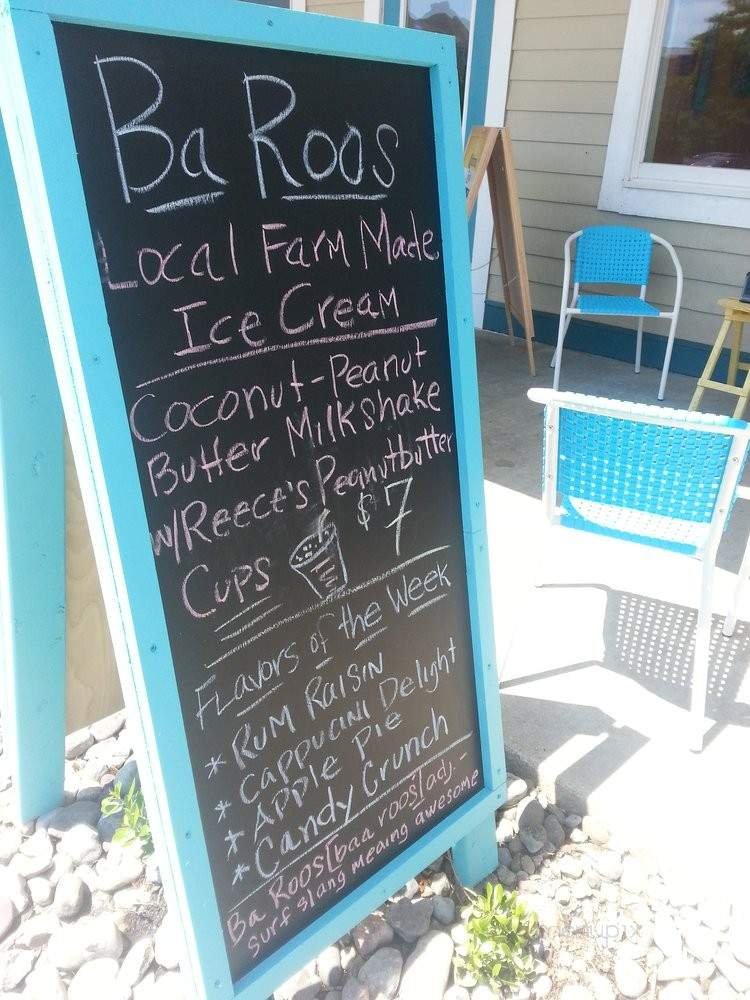 Ba Roos
Local Farm Made
Ice Cream
Coconut-Peanut
Butter Milkshake
w/Reece's Peanutbutter
Cups $7
Flavors of the Week
* Rum Raisin
* Cappucini Delight
* Apple Pie
* Candy Crunch
Ba Roos [baa roos] adj. -
surf slang meaning awesome